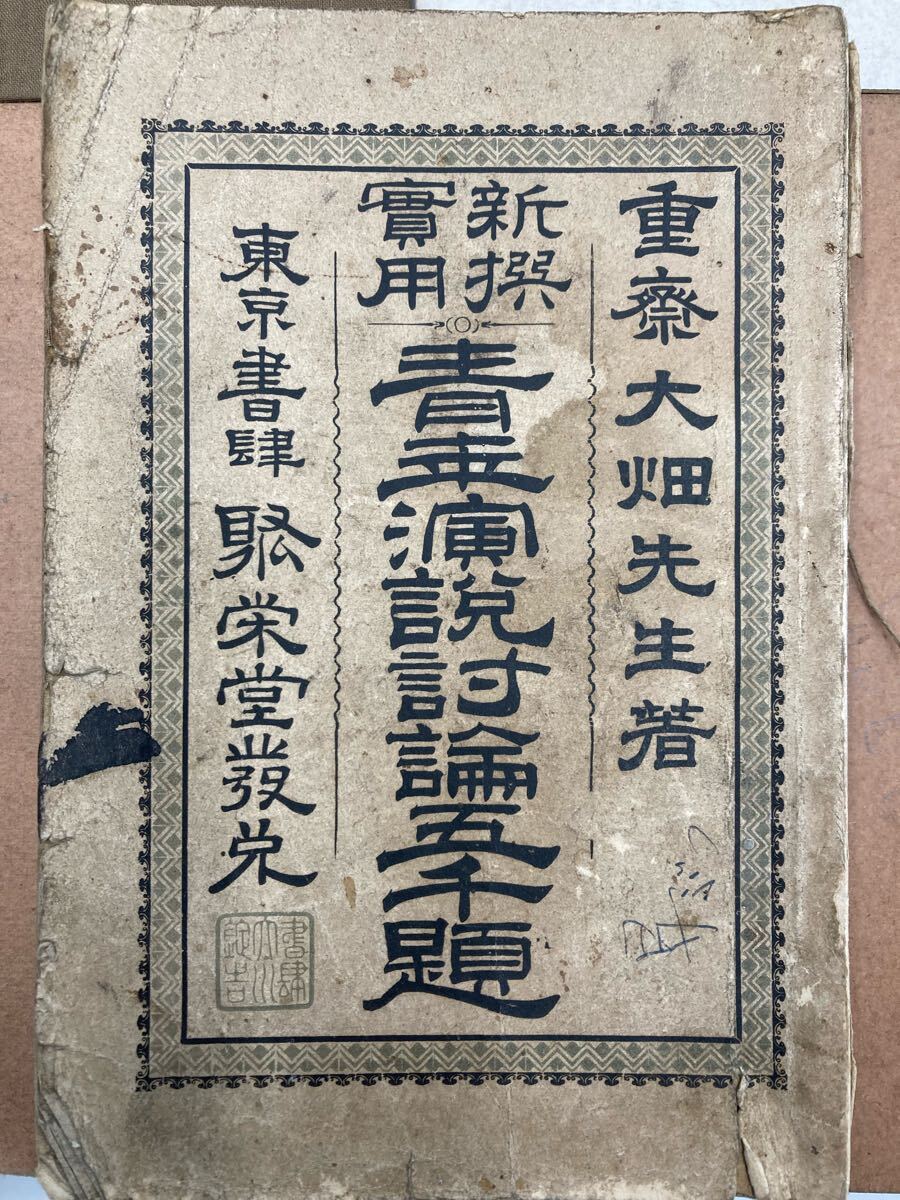 重齋大畑先生著
新撰
實用
青年演說討論五千題
東京書肆 聚栄堂發兌
書肆
大川
錠吉